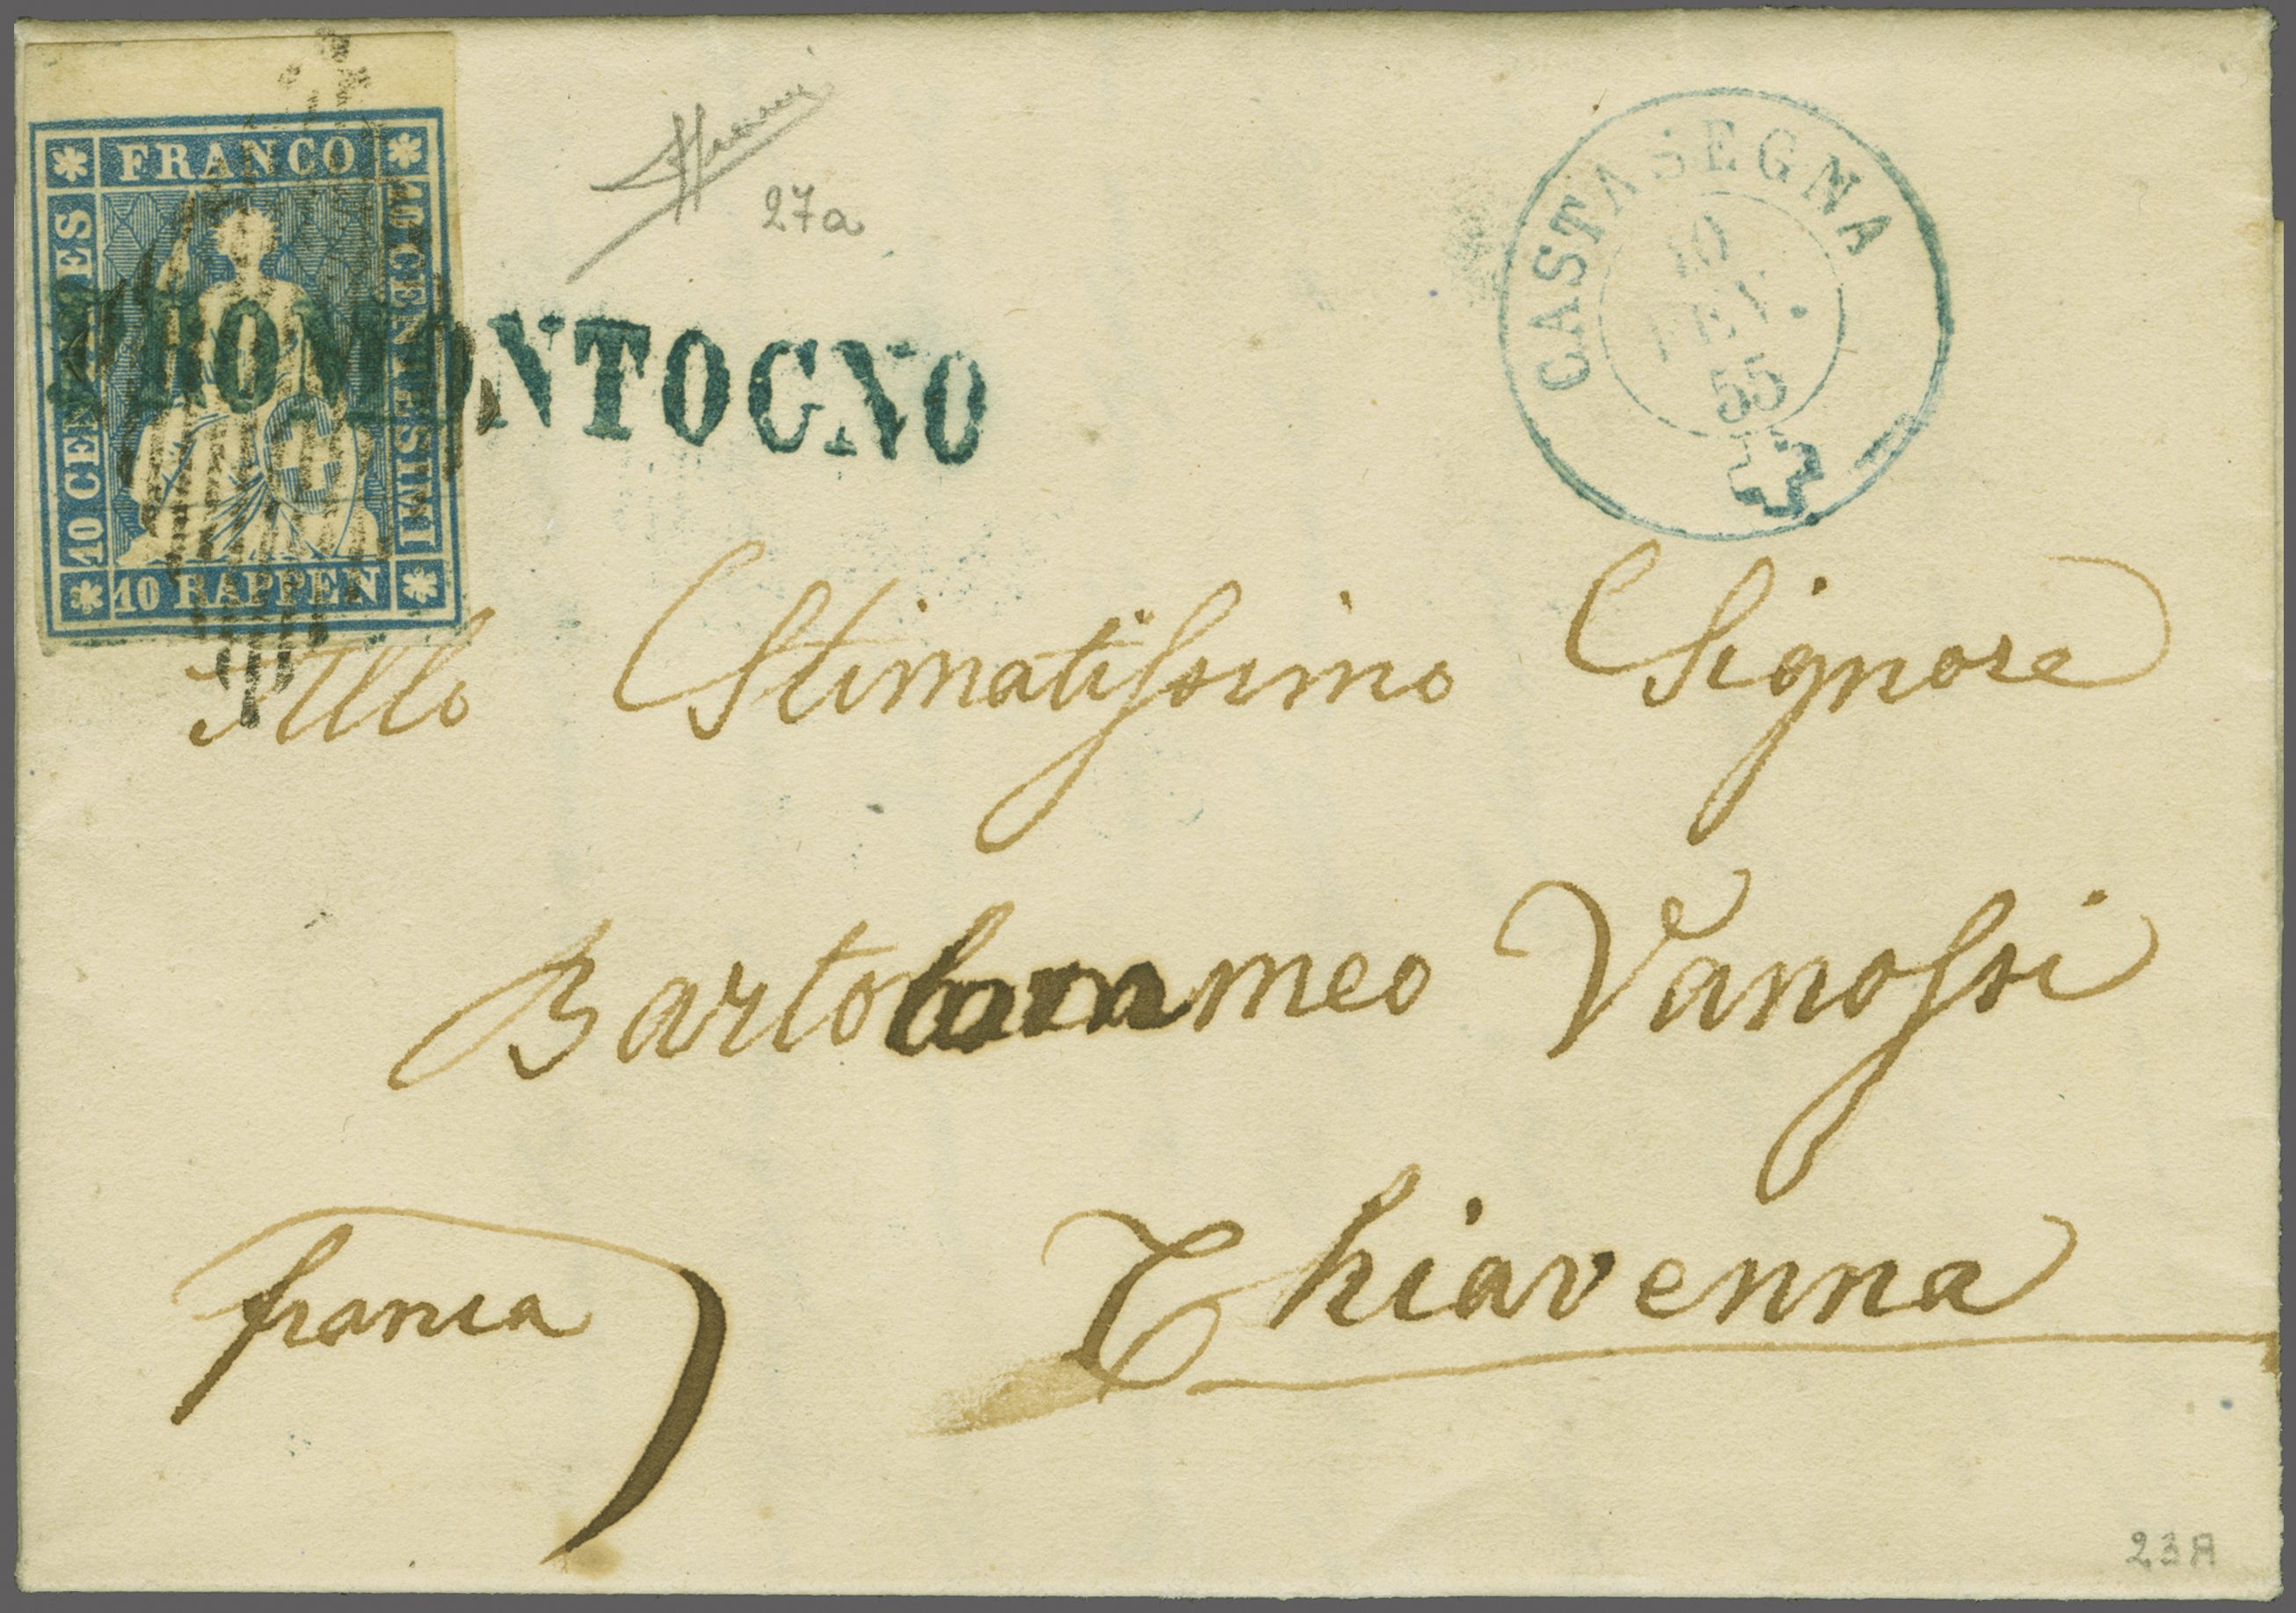 FRANCO
10 CENTESIMI
10 RAPPEN
10 CENTIMES
27a
PROMONTOGNO
CASTASEGNA
10
FEV.
55
Allo Stimatissimo Signore
Bartolommeo Vanossi
Chiavenna
franca
23A